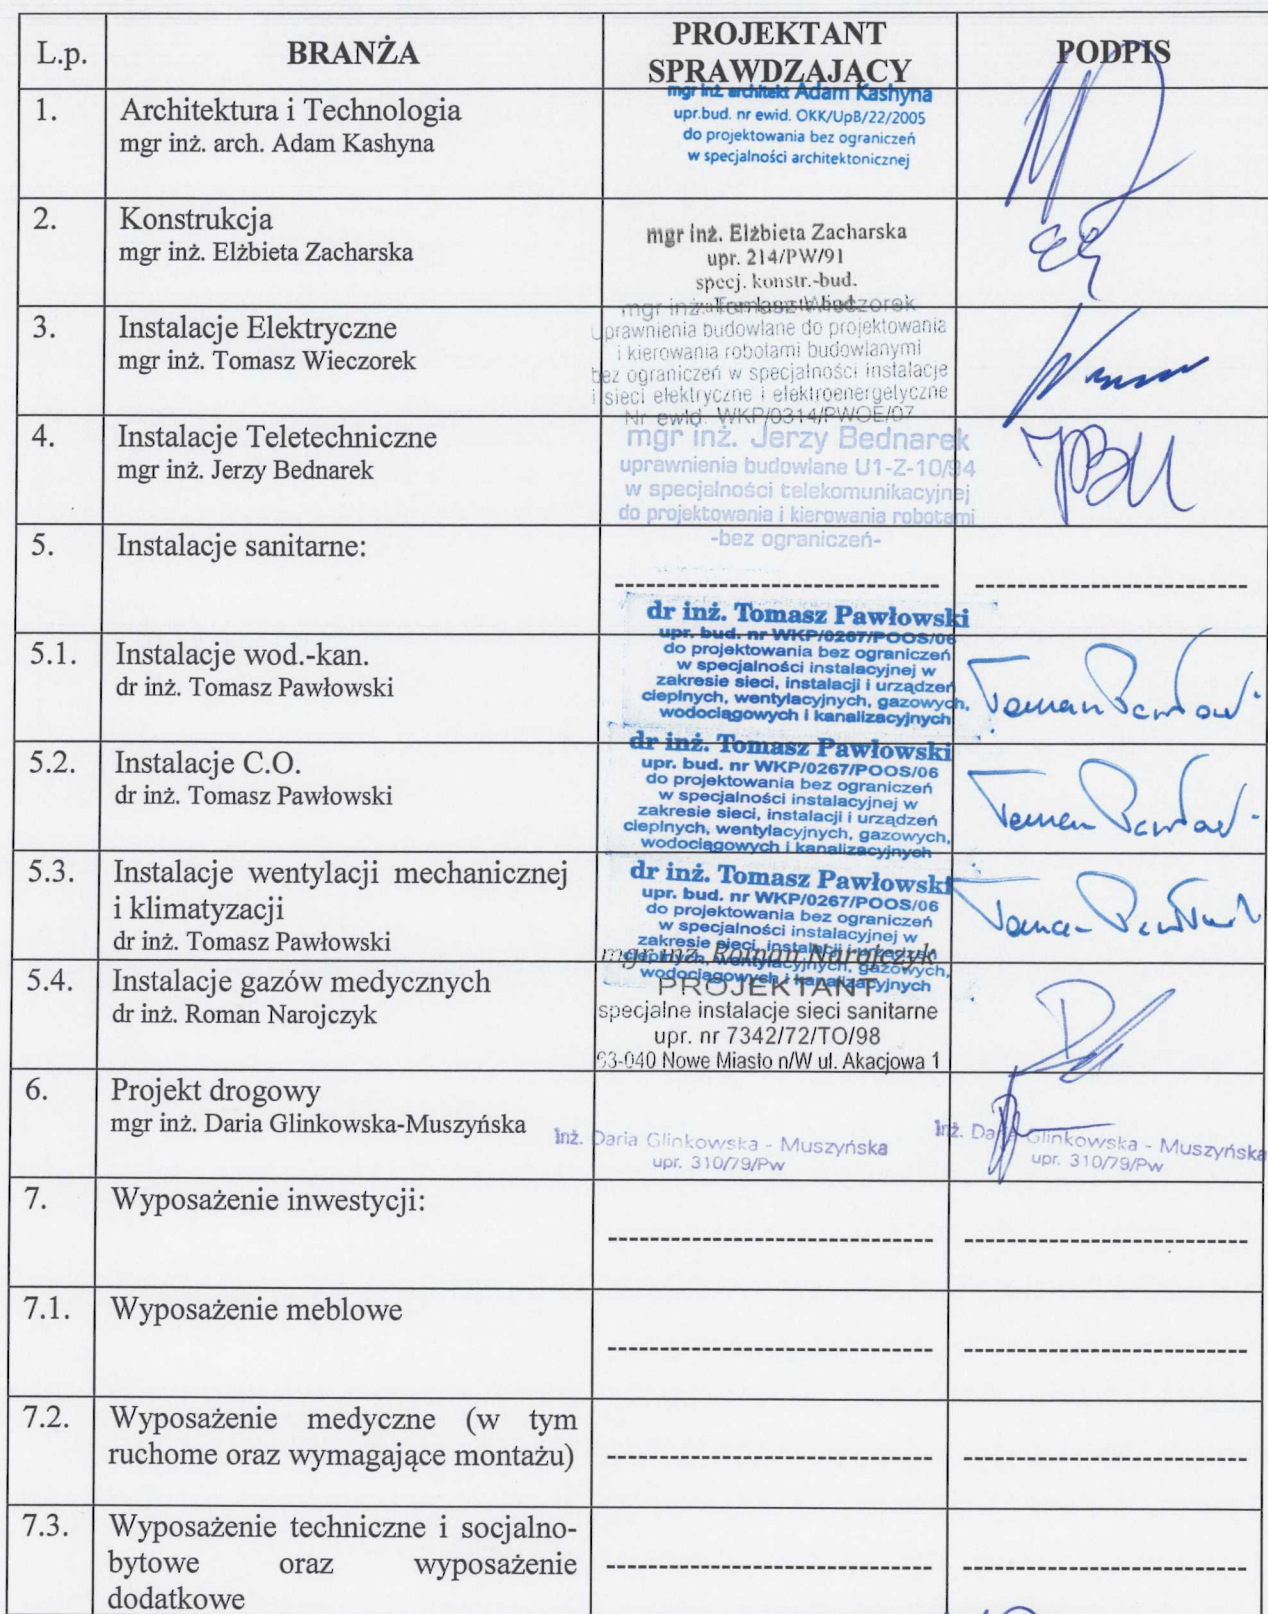 L.p.
BRANŻA
PROJEKTANT
SPRAWDZAJĄCY
PODPIS
1.
Architektura i Technologia
mgr inż. arch. Adam Kashyna
mgr inż. architekt Adam Kashyna
upr.bud. nr ewid. OKK/UpB/22/2005
do projektowania bez ograniczeń
w specjalności architektonicznej
2.
Konstrukcja
mgr inż. Elżbieta Zacharska
mgr inż. Elżbieta Zacharska
upr. 214/PW/91
specj. konstr.-bud.
3.
Instalacje Elektryczne
mgr inż. Tomasz Wieczorek
mgr inż. Tomasz Wieczorek
uprawnienia budowlane do projektowania
i kierowania robotami budowlanymi
bez ograniczeń w specjalności instalacje
i sieci elektryczne i elektroenergetyczne
Nr ewid. WKP/0314/PWOE/07
4.
Instalacje Teletechniczne
mgr inż. Jerzy Bednarek
mgr inż. Jerzy Bednarek
uprawnienia budowlane U1-Z-10/94
w specjalności telekomunikacyjnej
do projektowania i kierowania robotami
-bez ograniczeń-
5.
Instalacje sanitarne:
5.1.
Instalacje wod.-kan.
dr inż. Tomasz Pawłowski
dr inż. Tomasz Pawłowski
upr. bud. nr WKP/0267/POOS/06
do projektowania bez ograniczeń
w specjalności instalacyjnej w
zakresie sieci, instalacji i urządzeń
cieplnych, wentylacyjnych, gazowych,
wodociągowych i kanalizacyjnych
5.2.
Instalacje C.O.
dr inż. Tomasz Pawłowski
dr inż. Tomasz Pawłowski
upr. bud. nr WKP/0267/POOS/06
do projektowania bez ograniczeń
w specjalności instalacyjnej w
zakresie sieci, instalacji i urządzeń
cieplnych, wentylacyjnych, gazowych,
wodociągowych i kanalizacyjnych
5.3.
Instalacje wentylacji mechanicznej
i klimatyzacji
dr inż. Tomasz Pawłowski
dr inż. Tomasz Pawłowski
upr. bud. nr WKP/0267/POOS/06
do projektowania bez ograniczeń
w specjalności instalacyjnej w
zakresie sieci, instalacji i urządzeń
cieplnych, wentylacyjnych, gazowych,
wodociągowych i kanalizacyjnych
5.4.
Instalacje gazów medycznych
dr inż. Roman Narojczyk
mgr inż. Roman Narojczyk
PROJEKTANT
specjalne instalacje sieci sanitarne
upr. nr 7342/72/TO/98
63-040 Nowe Miasto n/W ul. Akacjowa 1
6.
Projekt drogowy
mgr inż. Daria Glinkowska-Muszyńska
inż. Daria Glinkowska - Muszyńska
upr. 310/79/Pw
inż. Daria Glinkowska - Muszyńska
upr. 310/79/Pw
7.
Wyposażenie inwestycji:
7.1.
Wyposażenie meblowe
7.2.
Wyposażenie medyczne (w tym
ruchome oraz wymagające montażu)
7.3.
Wyposażenie techniczne i socjalno-
bytowe oraz wyposażenie
dodatkowe